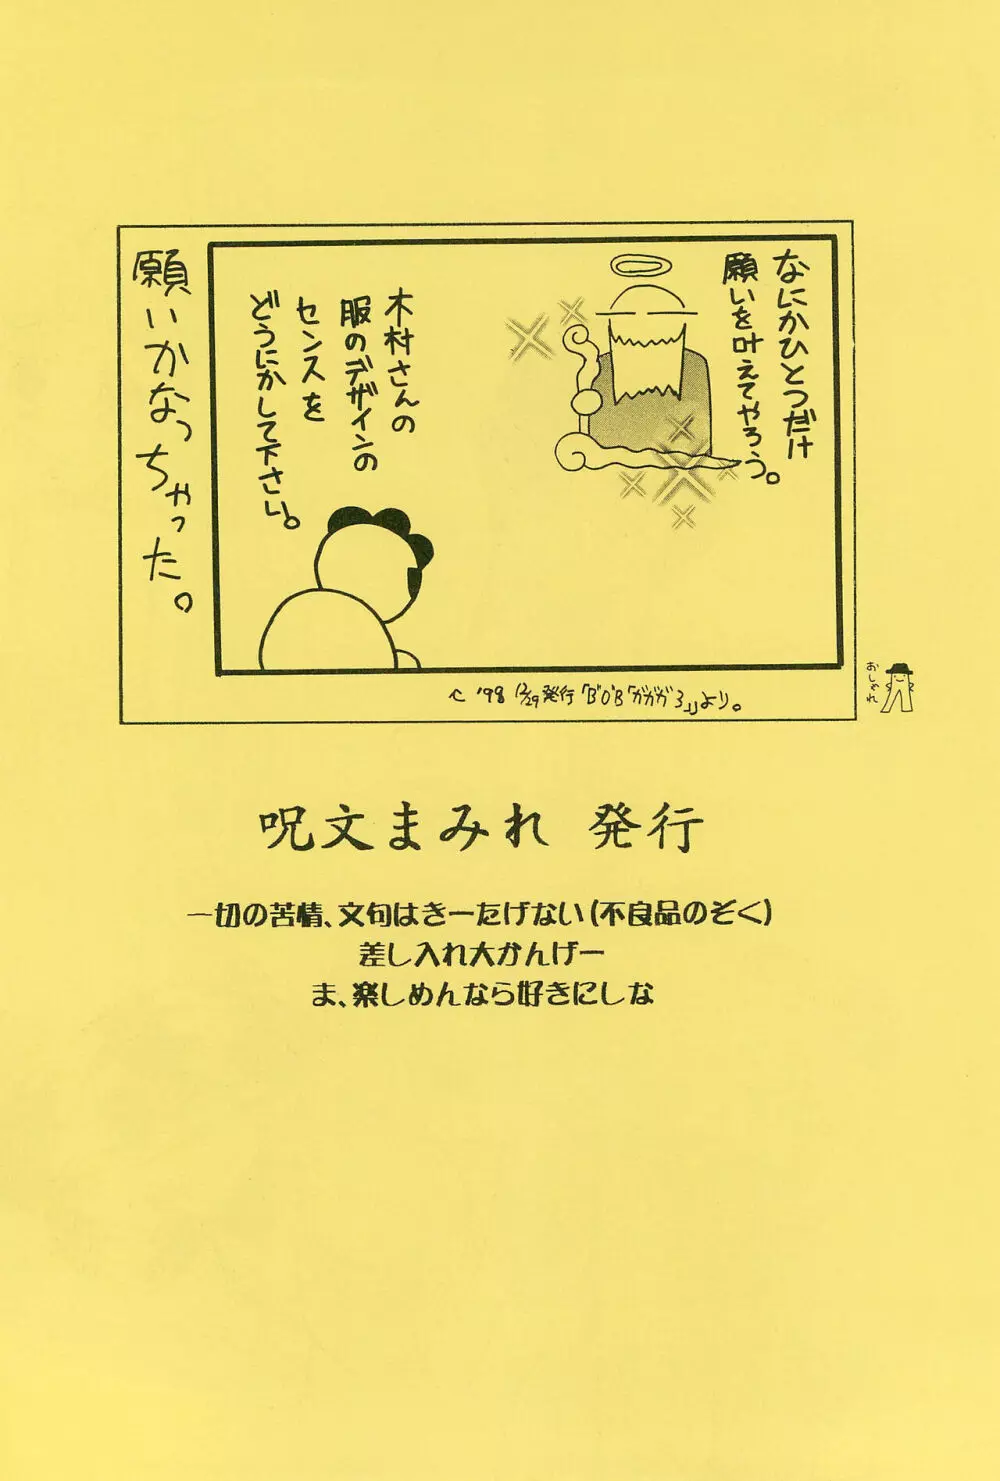 なにかひとつだけ
願いを叶えてやろう。
木村さんの
服のデザインの
センスを
どうにかして下さい。
願いかなっちゃった。
'98 12/29発行「B'O'B「ガガガ3」」より。
おしゃれ
呪文まみれ 発行
一切の苦情、文句はきーたげない(不良品のぞく)
差し入れ大かんげー
ま、楽しめんなら好きにしな